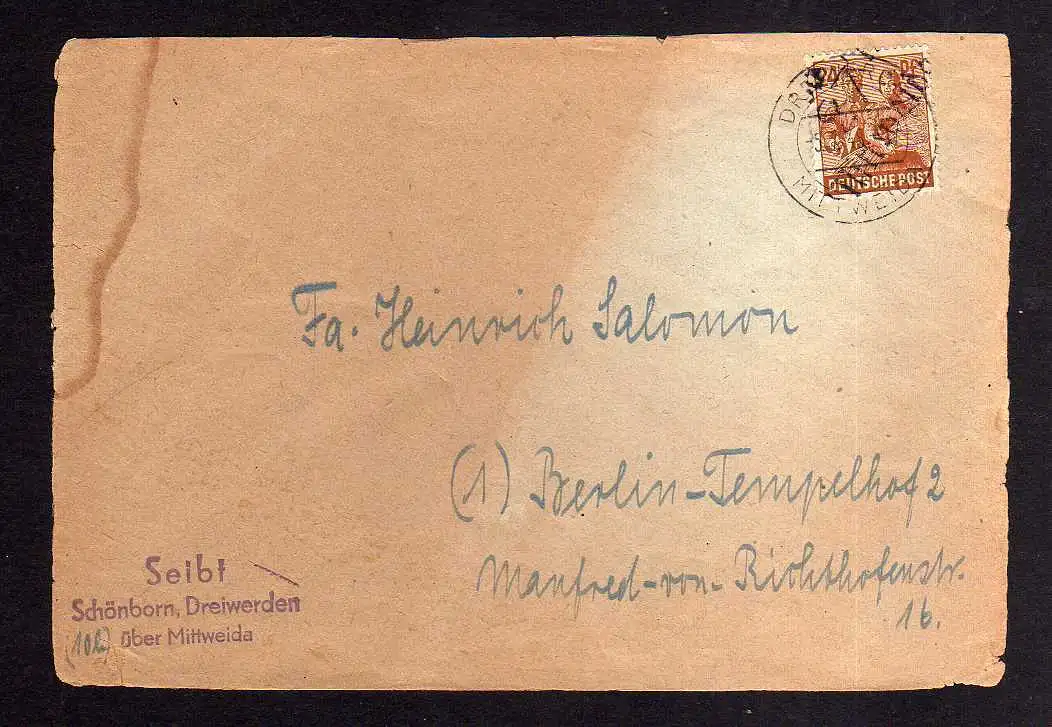 24
DEUTSCHE POST
MITTWEIDA
Fa. Heinrich Salomon
(1) Berlin-Tempelhof 2
Manfred-von-Richthofenstr.
16.
Seibt
Schönborn, Dreiwerden
über Mittweida